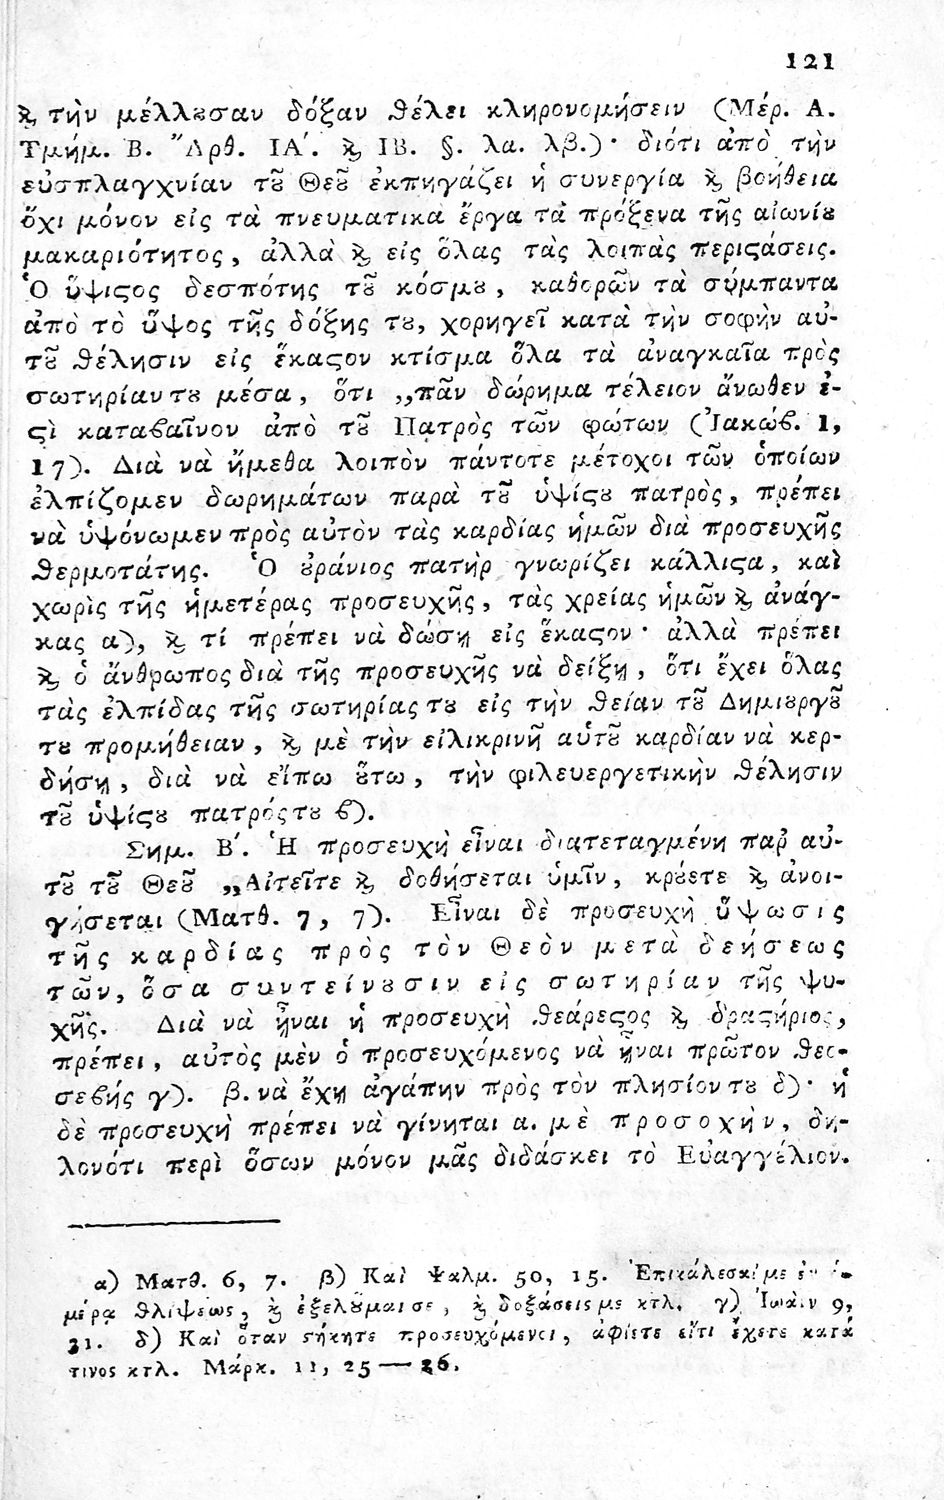 121
ϗ τὴν μέλλȣσαν δόξαν θέλει κληρονομήσειν (Μέρ. Α.
Τμήμ. Β. Ἄρθ. ΙΑ΄. ϗ ΙΒ. §. λα. λβ.)· διότι ἀπὸ τὴν
εὐσπλαγχνίαν τȣ͂ Θεȣ͂ ἐκπηγάζει ἡ συνεργία ϗ βοήθεια
ὄχι μόνον εἰς τὰ πνευματικὰ ἔργα τὰ πρόξενα τῆς αἰωνίȣ
μακαριότητος, ἀλλὰ ϗ εἰς ὅλας τὰς λοιπὰς περιϛάσεις.
Ὁ ὕψιϛος δεσπότης τȣ͂ κόσμȣ, καθορῶν τὰ σύμπαντα
ἀπὸ τὸ ὕψος τῆς δόξης τȣ, χορηγεῖ κατὰ τὴν σοφὴν αὐ-
τȣ͂ θέλησιν εἰς ἕκαϛον κτίσμα ὅλα τὰ ἀναγκαῖα πρὸς
σωτηρίαν τȣ μέσα, ὅτι „πᾶν δώρημα τέλειον ἄνωθεν ἐ-
ϛὶ καταβαῖνον ἀπὸ τȣ͂ Πατρὸς τῶν φώτων (Ἰακώβ. 1,
17). Διὰ νὰ ἤμεθα λοιπὸν πάντοτε μέτοχοι τῶν ὁποίων
ἐλπίζομεν δωρημάτων παρὰ τȣ͂ ὑψίϛȣ πατρὸς, πρέπει
νὰ ὑψόνωμεν πρὸς αὐτὸν τὰς καρδίας ἡμῶν διὰ προσευχῆς
θερμοτάτης. Ὁ ȣ̓ράνιος πατὴρ γνωρίζει κάλλιϛα, καὶ
χωρὶς τῆς ἡμετέρας προσευχῆς, τὰς χρείας ἡμῶν ϗ ἀνάγ-
κας α), ϗ τί πρέπει νὰ δώσῃ εἰς ἕκαϛον· ἀλλὰ πρέπει
ϗ ὁ ἄνθρωπος διὰ τῆς προσευχῆς νὰ δείξῃ, ὅτι ἔχει ὅλας
τὰς ἐλπίδας τῆς σωτηρίας τȣ εἰς τὴν θείαν τȣ͂ Δημιȣργȣ͂
τȣ προμήθειαν, ϗ μὲ τὴν εἰλικρινῆ αὑτȣ͂ καρδίαν νὰ κερ-
δήσῃ, διὰ νὰ εἴπω ȣ̔́τω, τὴν φιλευεργετικὴν θέλησιν
τȣ͂ ὑψίϛȣ πατρός τȣ β).
Σημ. Β΄. Ἡ προσευχὴ εἶναι διατεταγμένη παρ᾽ αὐ-
τȣ͂ τȣ͂ Θεȣ͂ „Αἰτεῖτε ϗ δοθήσεται ὑμῖν, κρȣ́ετε ϗ ἀνοι-
γήσεται (Ματθ. 7, 7). Εἶναι δὲ προσευχὴ ὕψωσις
τῆς καρδίας πρὸς τὸν Θεὸν μετὰ δεήσεως
τῶν, ὅσα συντείνȣσιν εἰς σωτηρίαν τῆς ψυ-
χῆς. Διὰ νὰ ἦναι ἡ προσευχὴ θεάρεϛος ϗ δραϛήριος,
πρέπει, αὐτὸς μὲν ὁ προσευχόμενος νὰ ἦναι πρῶτον θεο-
σεβής γ). β. νὰ ἔχῃ ἀγάπην πρὸς τὸν πλησίον τȣ δ)· ἡ
δὲ προσευχὴ πρέπει νὰ γίνηται α. μὲ προσοχὴν, δη-
λονότι περὶ ὅσων μόνον μᾶς διδάσκει τὸ Εὐαγγέλιον.
α) Ματθ. 6, 7. β) Καὶ Ψαλμ. 50, 15. Ἐπικάλεσαί με ἐν ἡ-
μέρᾳ θλίψεως, ϗ ἐξελȣ͂μαί σε, ϗ δοξάσεις με κτλ. γ) Ἰωάν 9,
31. δ) Καὶ ὅταν ϛήκητε προσευχόμενοι, ἀφίετε εἴτι ἔχετε κατά
τινος κτλ. Μάρκ. 11, 25 — 26.